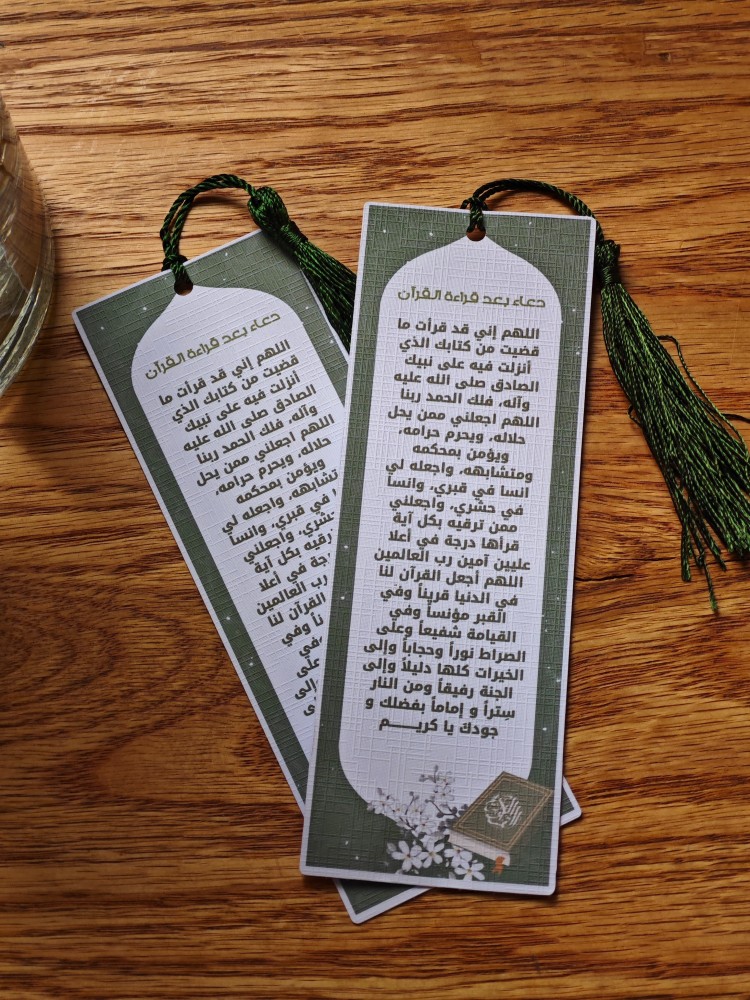 دعاء بعد قراءة القرآن
اللهم إني قد قرأت ما
قضيت من كتابك الذي
أنزلت فيه على نبيك
الصادق صلى الله عليه
وآله، فلك الحمد ربنا
اللهم اجعلني ممن يحل
حلاله، ويحرم حرامه،
ويؤمن بمحكمه
ومتشابهه، واجعله لي
انسا في قبري، وانسا
في حشري، واجعلني
ممن ترقيه بكل آية
قرأها درجة في أعلا
عليين آمين رب العالمين
اللهم أجعل القرآن لنا
في الدنيا قريناً وفي
القبر مؤنساً وفي
القيامة شفيعاً وعلى
الصراط نوراً وحجاباً وإلى
الخيرات كلها دليلاً وإلى
الجنة رفيقاً ومن النار
ستراً و إماماً بفضلك و
جودك يا كريـــــم
دعاء بعد قراءة القرآن
اللهم إني قد قرأت ما
قضيت من كتابك الذي
أنزلت فيه على نبيك
الصادق صلى الله عليه
وآله، فلك الحمد ربنا
اللهم اجعلني ممن يحل
حلاله، ويحرم حرامه،
ويؤمن بمحكمه
واجعله لي
في قبري، وانسا
واجعلني
ترقيه بكل آية
في أعلا
رب العالمين
القرآن لنا
وفي